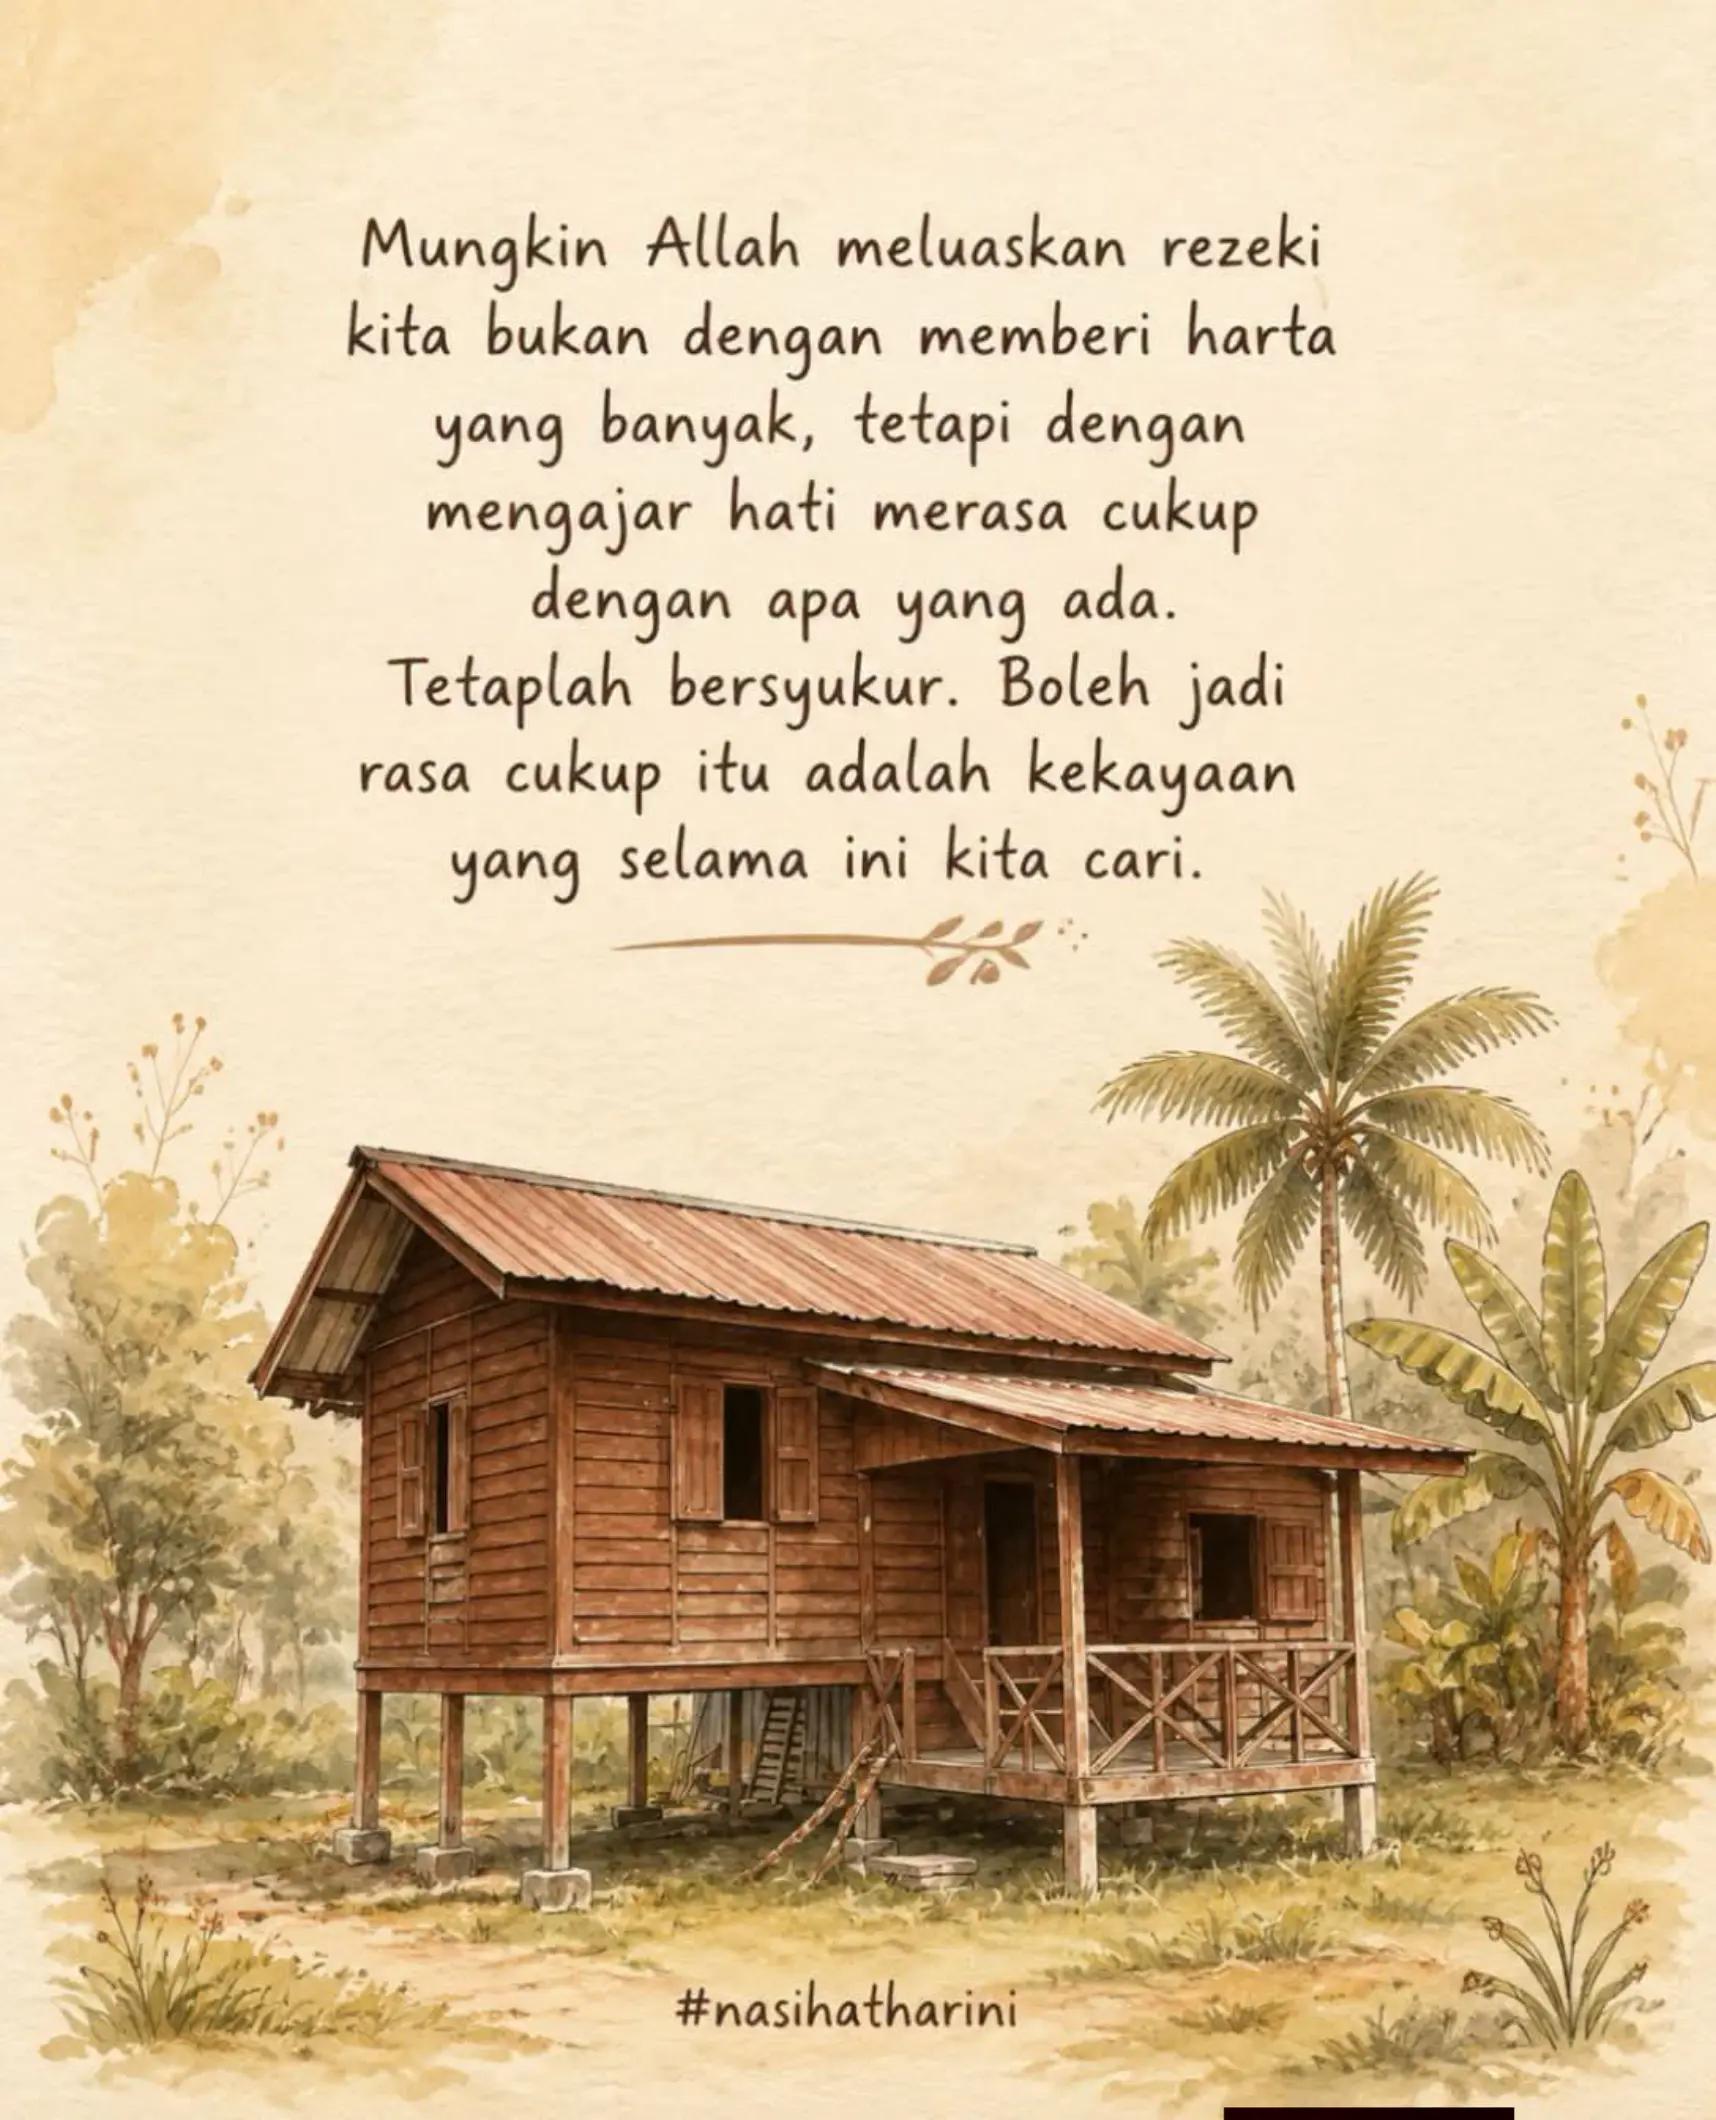 Mungkin Allah meluaskan rezeki
kita bukan dengan memberi harta
yang banyak, tetapi dengan
mengajar hati merasa cukup
dengan apa yang ada.
Tetaplah bersyukur. Boleh jadi
rasa cukup itu adalah kekayaan
yang selama ini kita cari.
#nasihatharini